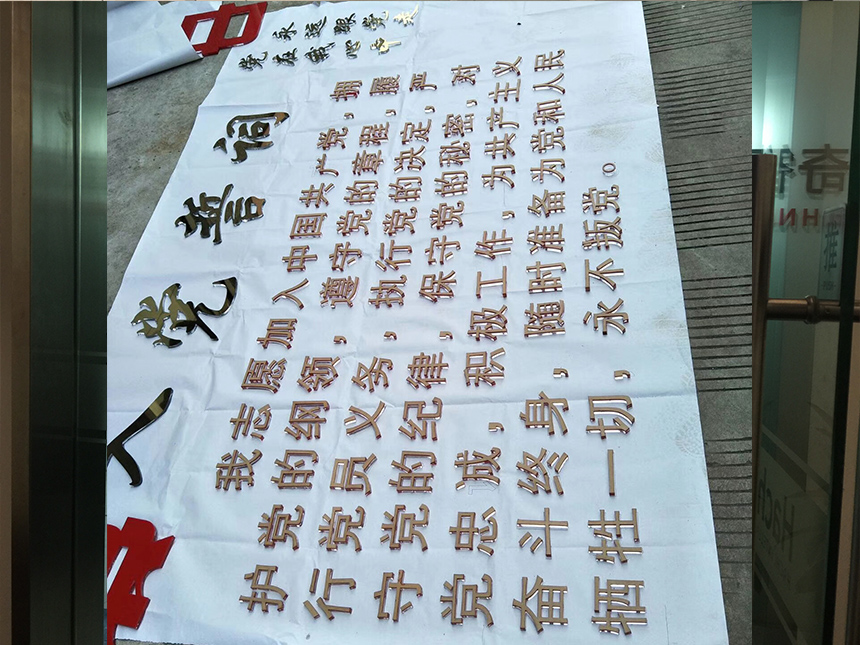 永远跟党走
党在我心中
入党誓词
我志愿加入中国共产党，拥
护党的纲领，遵守党的章程，履
行党员义务，执行党的决定，严
守党的纪律，保守党的秘密，对
党忠诚，积极工作，为共产主义
奋斗终身，随时准备为党和人民
牺牲一切，永不叛党。
奇
HN
Hach